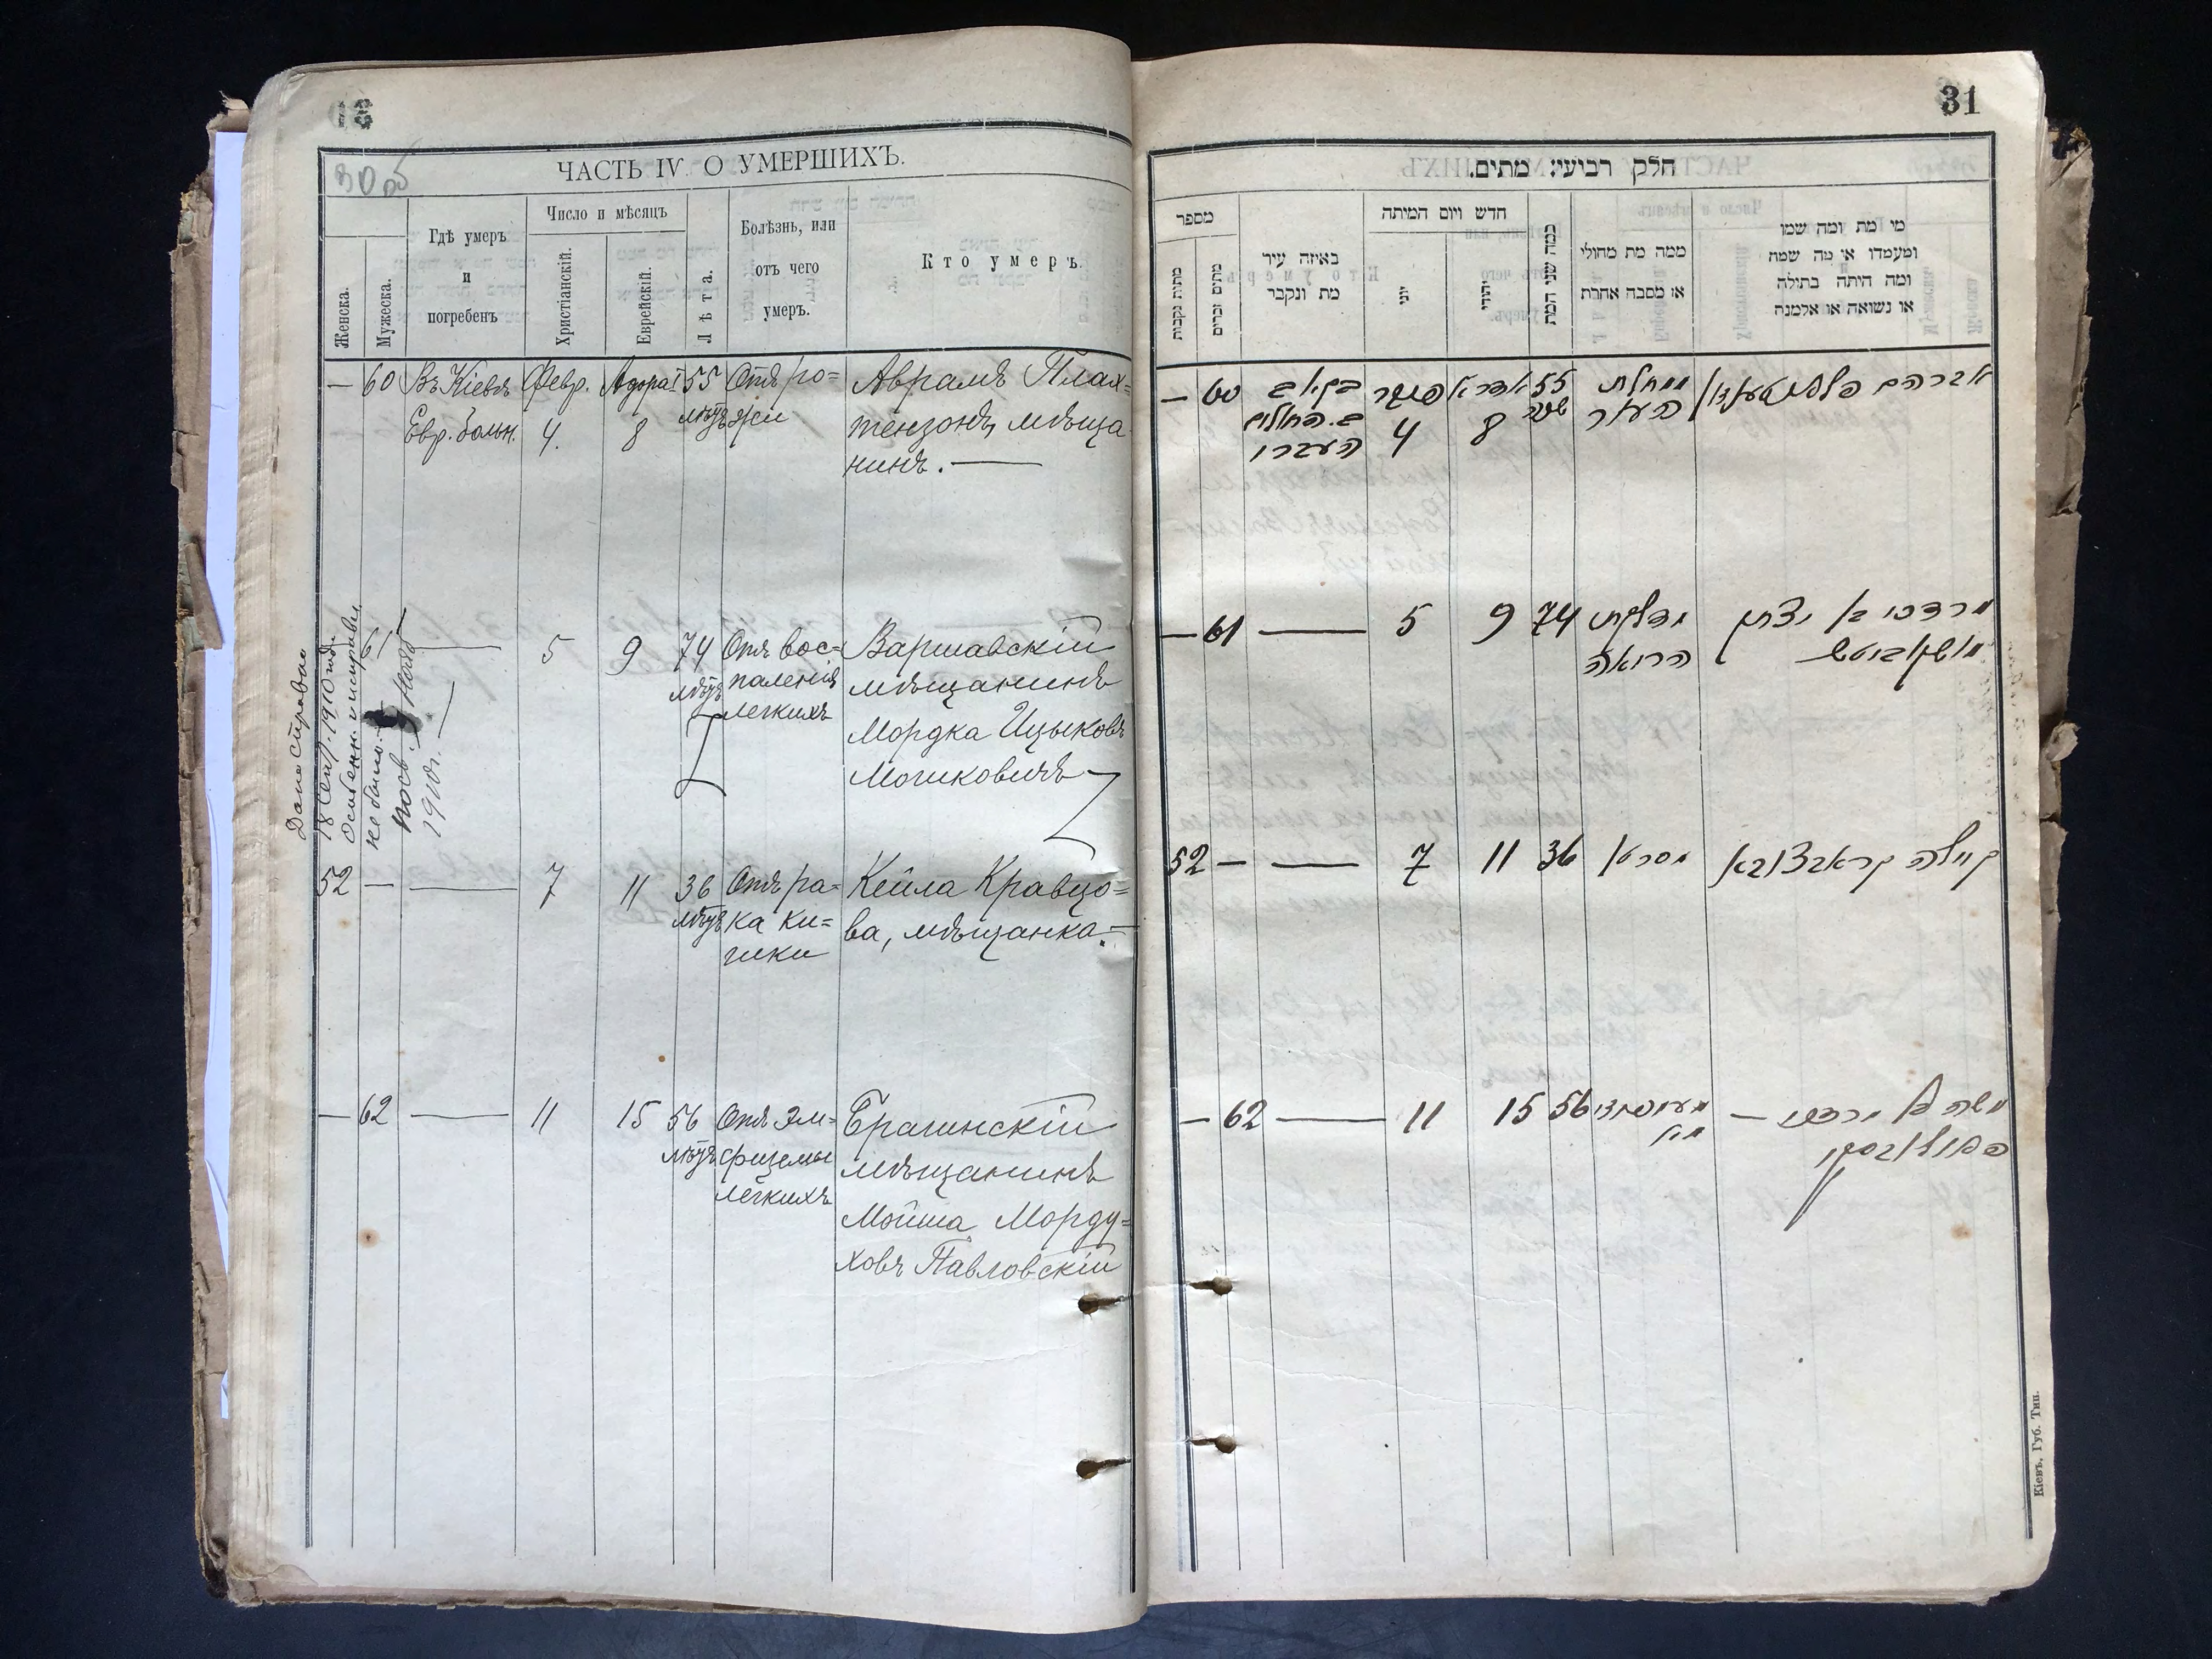 30 об
ЧАСТЬ IV О УМЕРШИХЪ.
Женска.
Мужеска.
Гдѣ умеръ
и
погребенъ
Число и мѣсяцъ
Христіанскій.
Еврейскій.
Лѣта.
Болѣзнь, или
отъ чего
умеръ.
Кто умеръ.
— 60 Въ Кіевѣ Февр. Адора I 55 Отъ ро= Аврамъ Плах=
Евр. больн. 4. 8 лѣтъ жи тензонъ, мѣща
нинъ. —
61 — 5 9 74 Отъ вос= Варшавскій
лѣтъ паленія мѣщанинъ
легкихъ Мордка Ицыковъ
Мошковичъ
Дана справка
18 Сент. 1910 года
не было.
1910 г. —
52 — — 7 11 36 Отъ ра= Кейла Кравцо=
лѣтъ ка ки= ва, мѣщанка. —
шки
— 62 — 11 15 56 Отъ эм= Брагинскій
лѣтъ физемы мѣщанинъ
легкихъ Мойша Морду=
ховъ Павловскій
31
חלק רביעי: מתים.
מספר
מתות נקבות
מתים זכרים
באיזה עיר
מת ונקבר
חדש ויום המיתה
יוני
יהודי
כמה שני המת
ממה מת מחולי
או מסבה אחרת
מי מת ומה שמו
ומעמדו או מה שמה
ומה היתה בתולה
או נשואה או אלמנה
— 60 4 8 55 אברהם
העברי
— 61 — 5 9 74 מדלקת מרדכי בן יצחק
הריאה מאשקאוויטש
52 — — 7 11 36 מסרטן קיילה קראווצאווא
— 62 — 11 15 56 משה בן מרדכי —
פאוולאווסקי
Кіевъ, Губ. Тип.